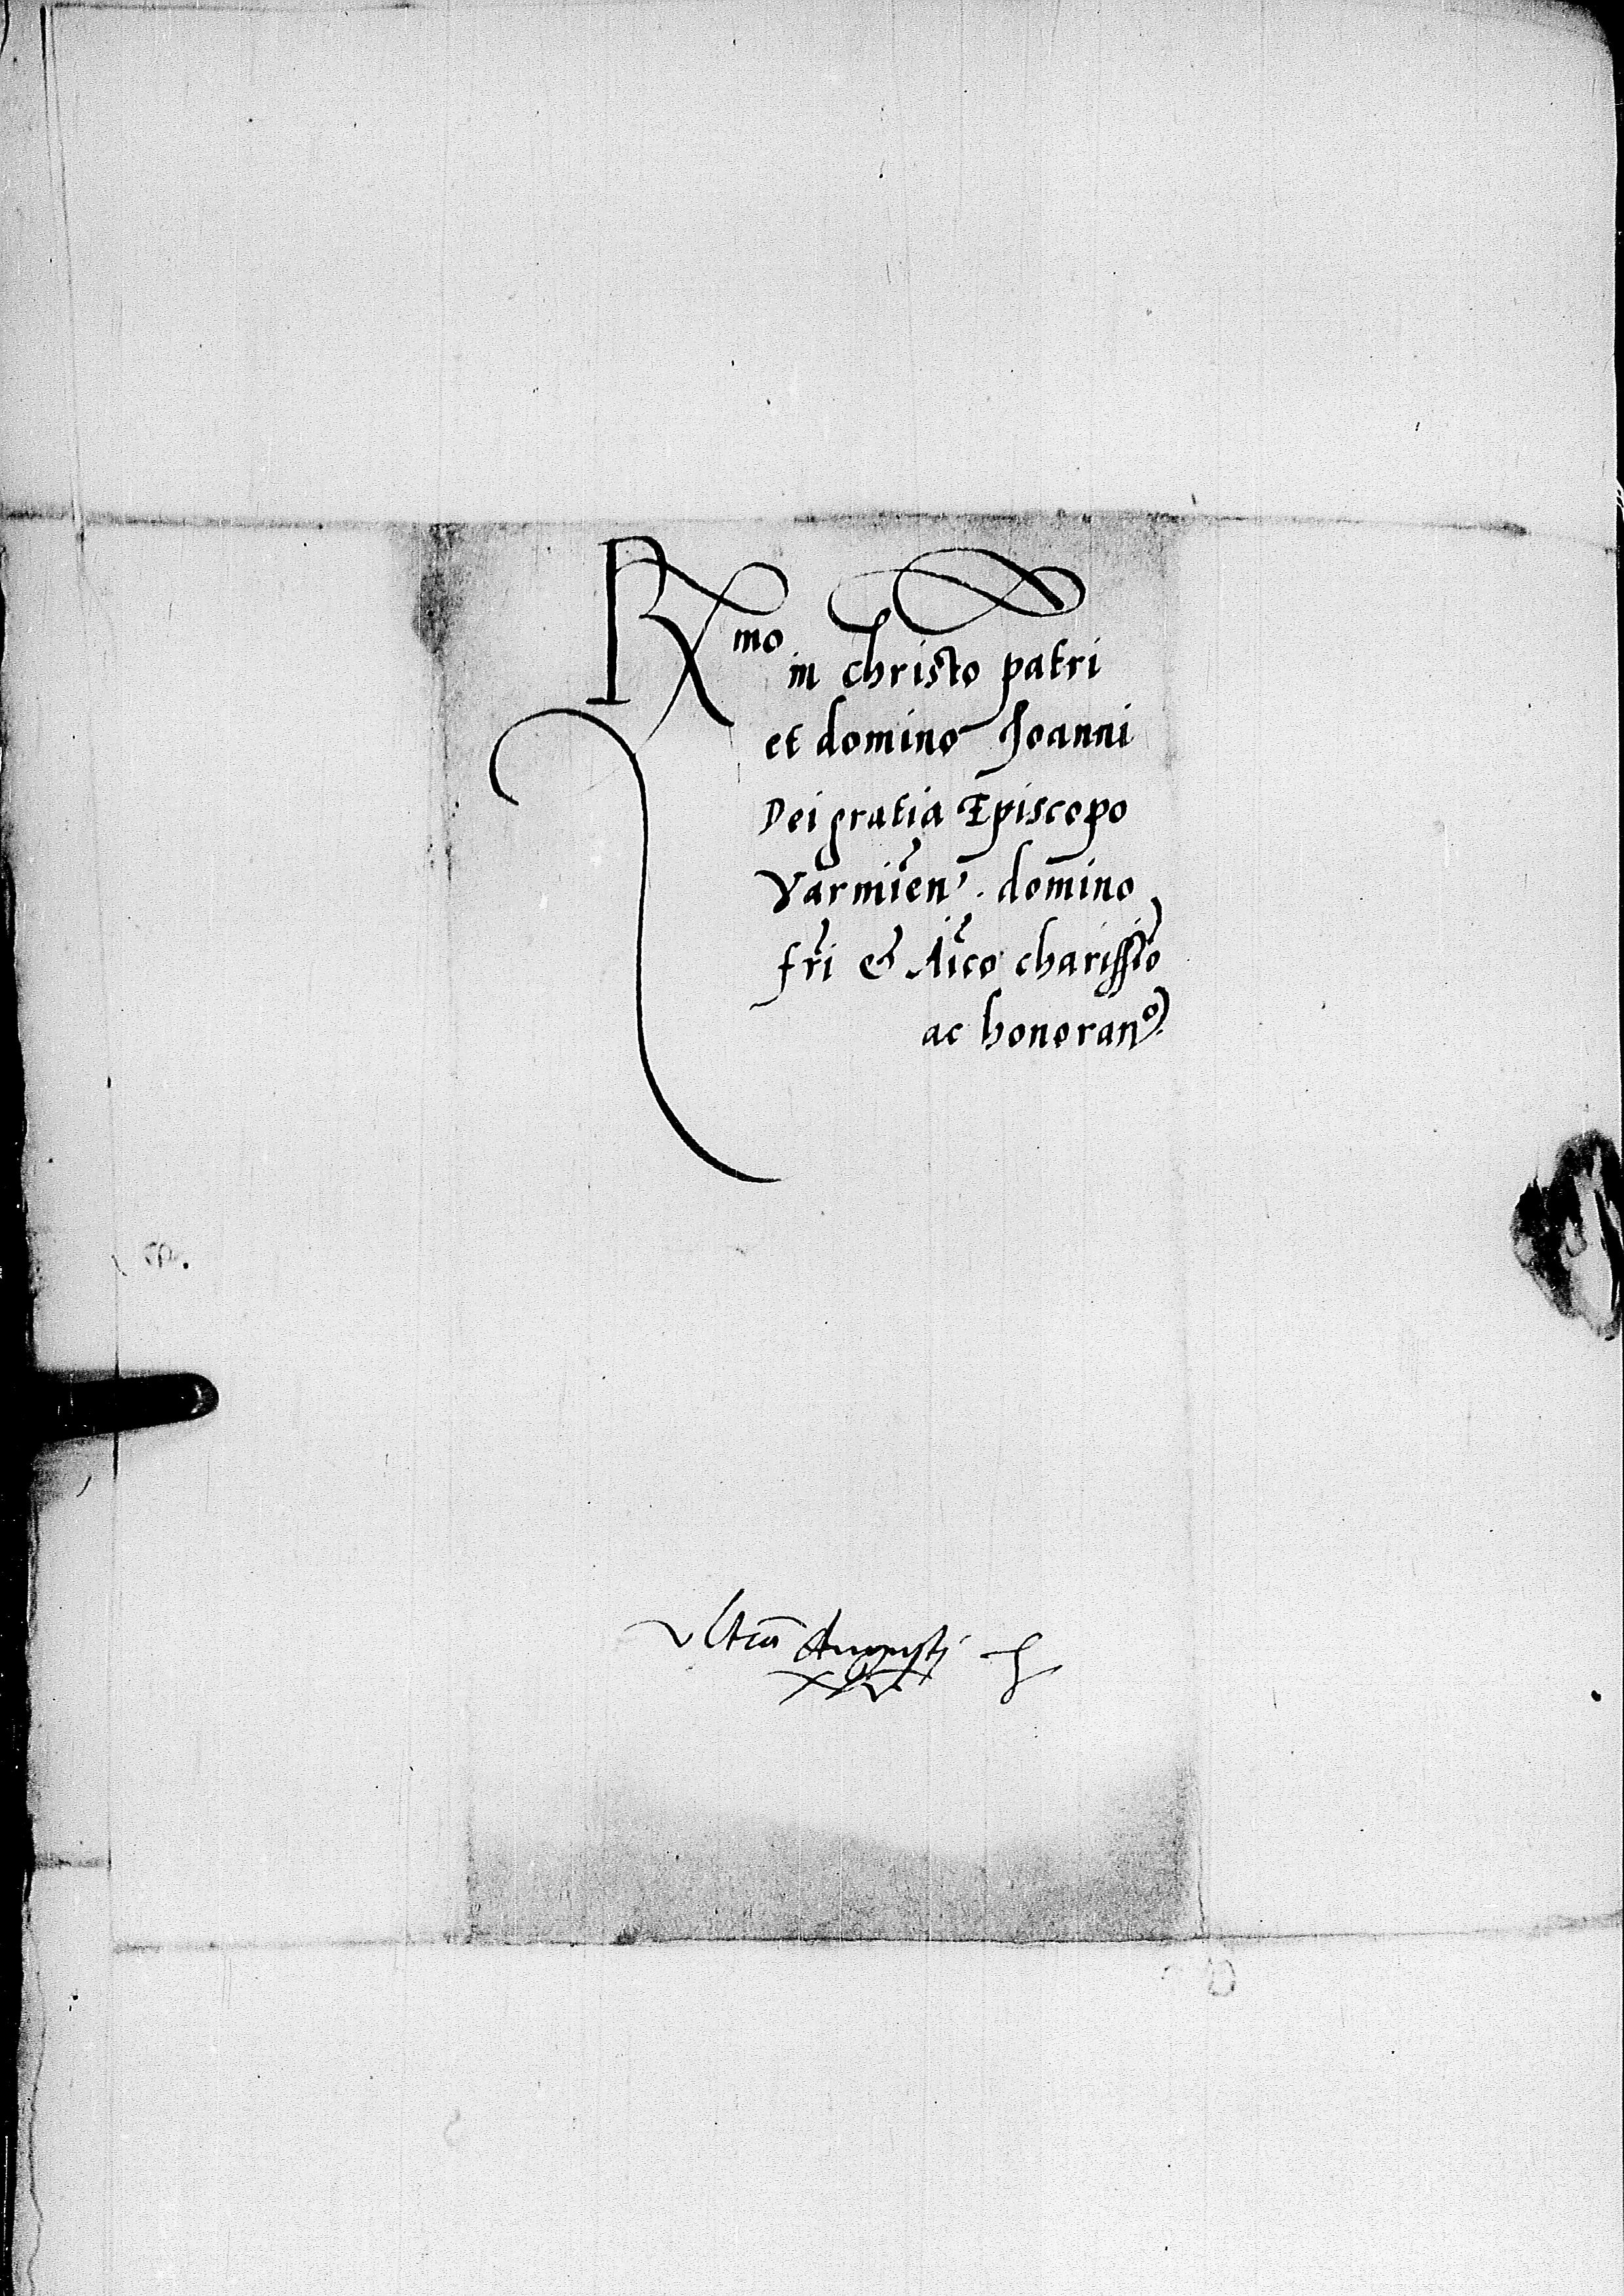 Rmo in Christo patri
et domino Joanni
Dei gratia Episcopo
Varmien. domino
fri & Aico charissio
ac honorano
Augusti